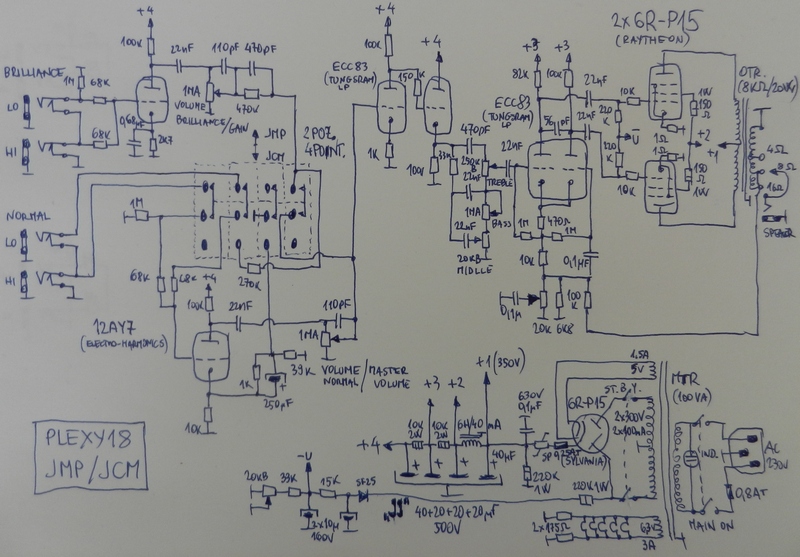 +4
+4
2x6R-P15
(RAYTHEON)
100K
22nF
110pF
470pF
100K
+4
+3
+3
BRILLIANCE
1M
68K
ECC83
(TUNGSRAM)
LP
150K
82K
100K
22nF
10K
1W
150
Ω
OTR.
(8KΩ/20W)
LO
1MA
VOLUME
BRILLIANCE/GAIN
470K
ECC83
(TUNGSRAM)
LP
56pF
22nF
220
K
1Ω
+2
0,68µF
2K7
68K
JMP
JCM
2POZ.
4POINT.
470pF
22nF
220
K
-U
1Ω
+1
4Ω
8Ω
16Ω
HI
1K
100K
33K
250K
B
TREBLE
22nF
10K
150
Ω
1W
SPEAKER
NORMAL
LO
1M
1MA
BASS
470Ω
1M
1M
HI
22nF
10K
0,1µF
68K
68K
+4
270K
20KB
MIDLLE
100K
22nF
110pF
0,1µ
20K
6K8
100
K
12AY7
(ELECTRO-HARMONICS)
1MA
VOLUME/MASTER
NORMAL/VOLUME
+1(350V)
1K
39K
250µF
10K
+3
+2
630V
0,1µF
4,5A
5V
MTR
(100VA)
ST.B.Y.
6R-P15
(SYLVANIA)
2x300V
2x100mA
PLEXY18
JMP/JCM
+4
10K
2W
10K
2W
6H/40mA
40µF
220K
1W
IND.
AC
230V
-U
20KB
33K
15K
SF25
220K 1W
0,8AT
2x10µ
100V
40+20+20+20µF
500V
2x175Ω
6,3V
3A
MAIN ON